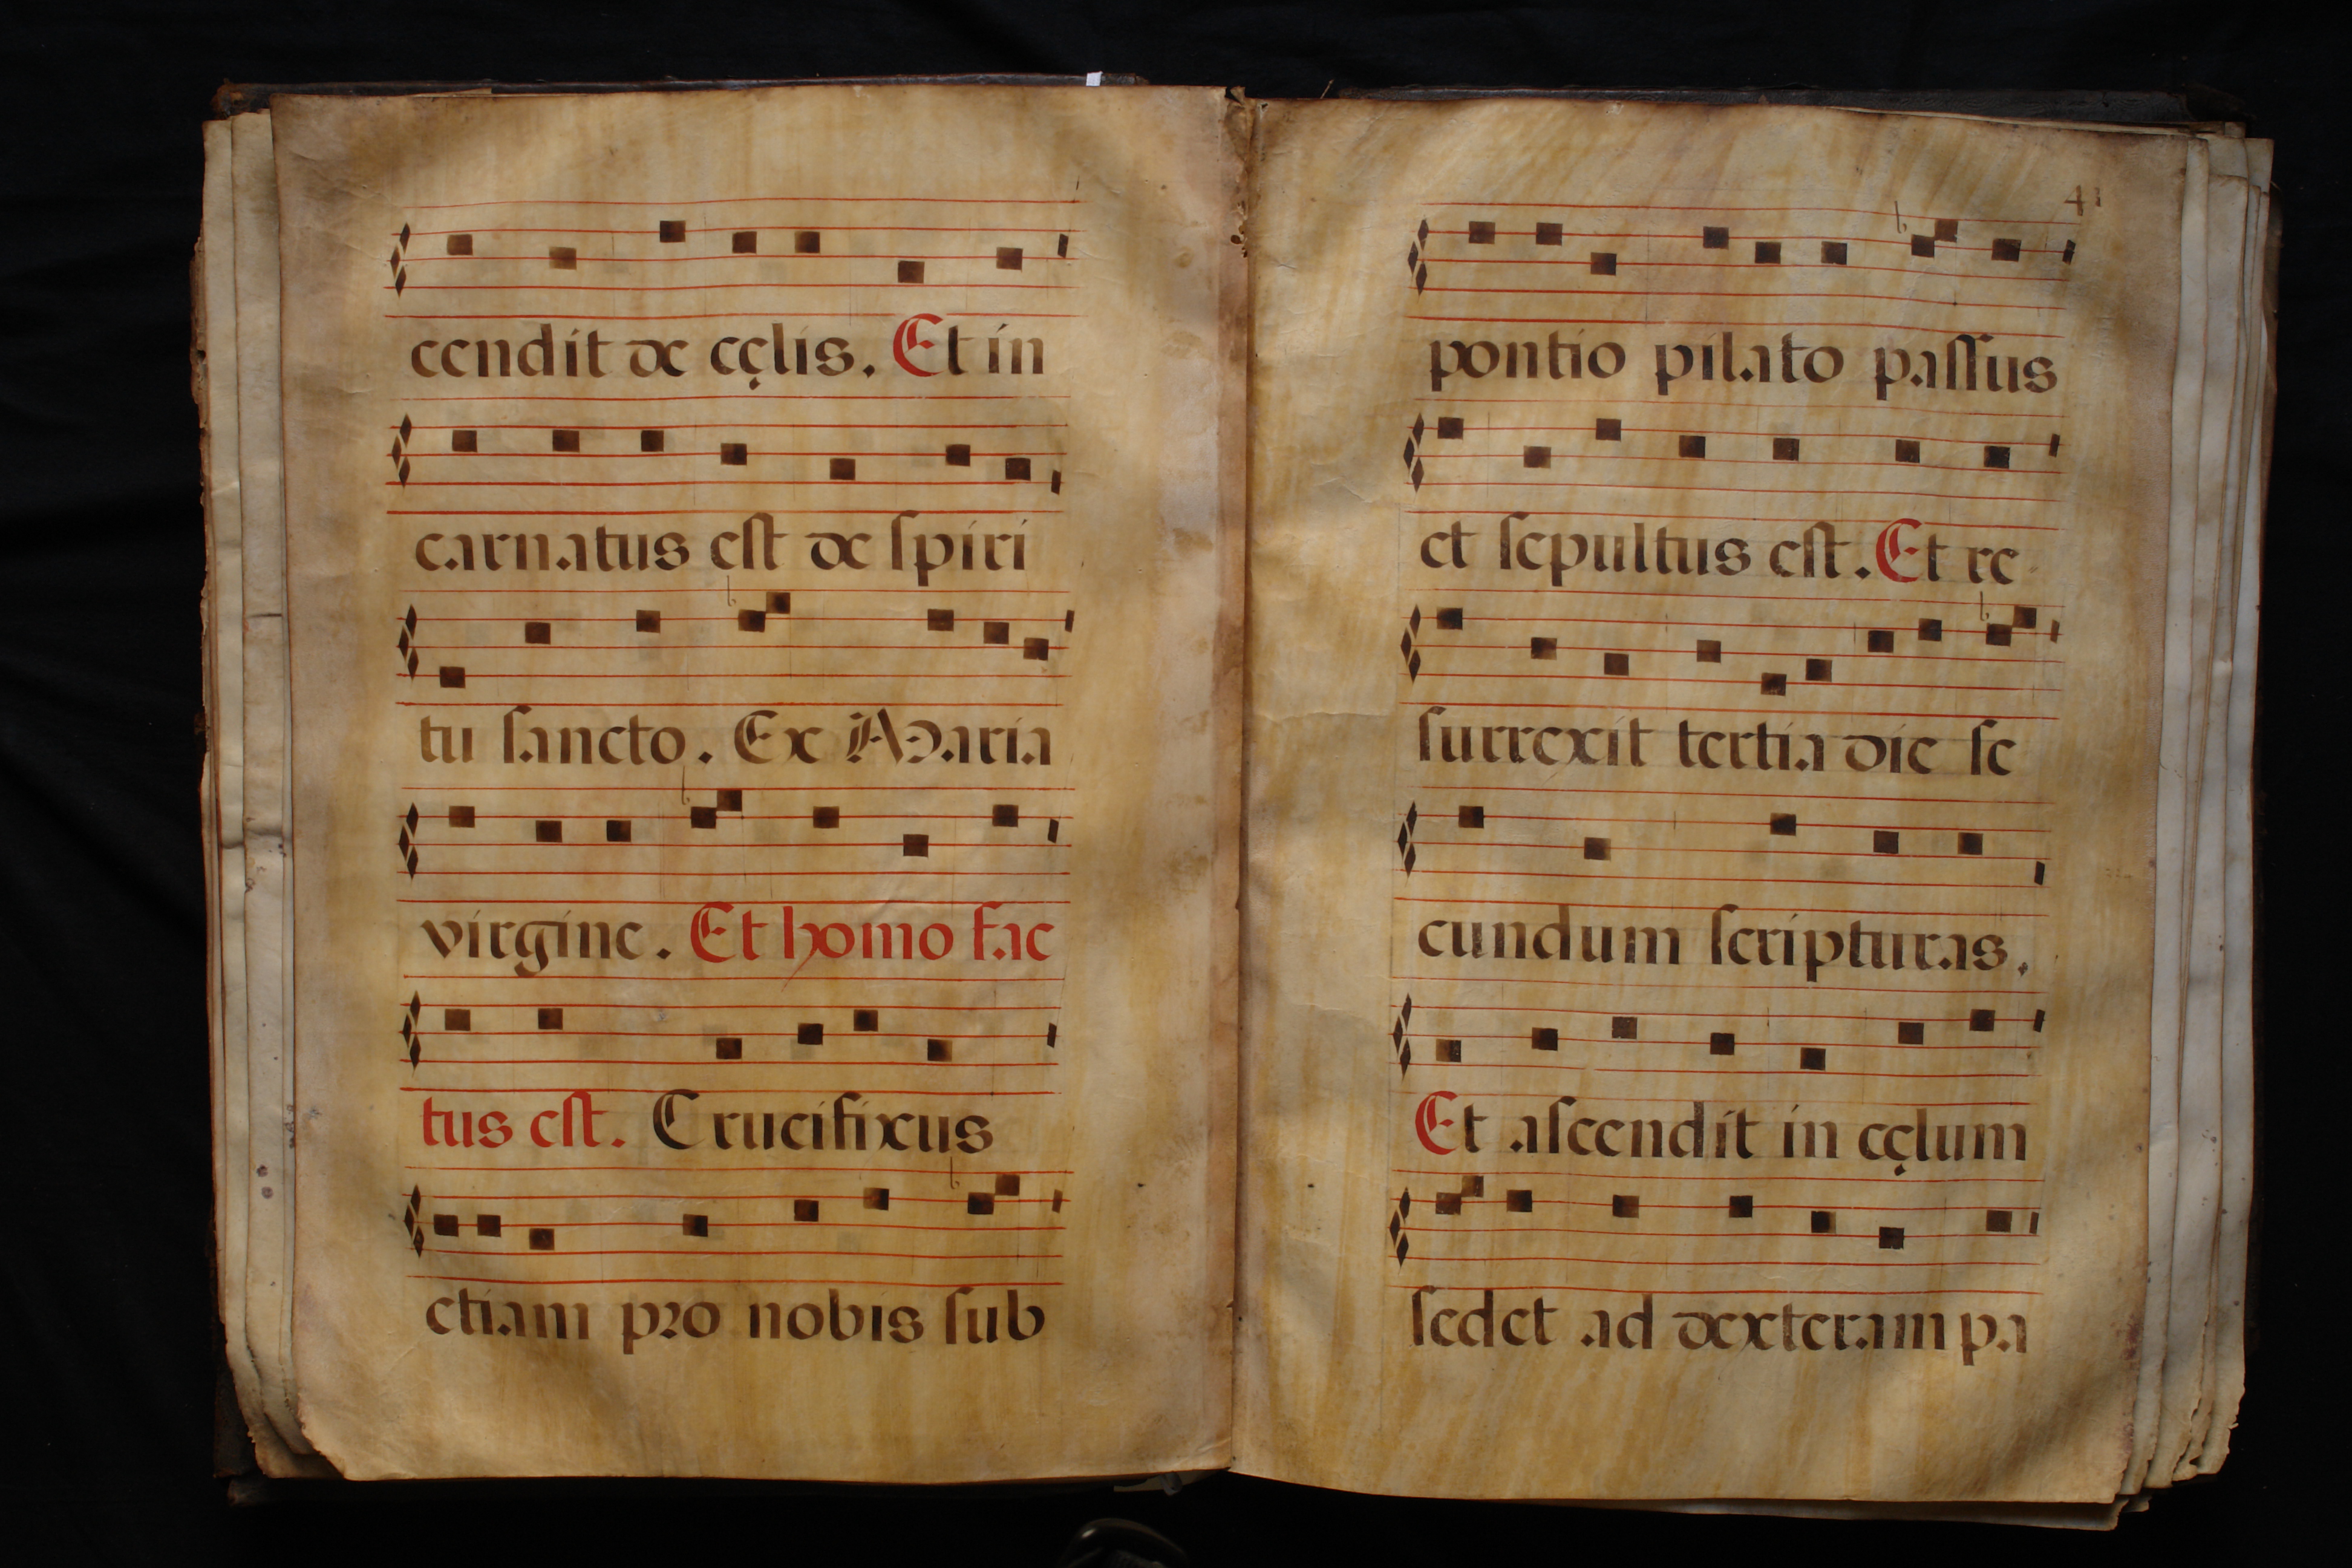 cendit de cęlis. Et in
carnatus est de ſpiri
tu ſancto. Ex Maria
virgine. Et homo fac
tus eſt. Crucifixus
etiam pro nobis ſub
41
pontio pilato paſſus
et ſepultus eſt. Et re
ſurrexit tertia die ſe
cundum ſcripturas.
Et aſcendit in cęlum
ſedet ad dexteram pa